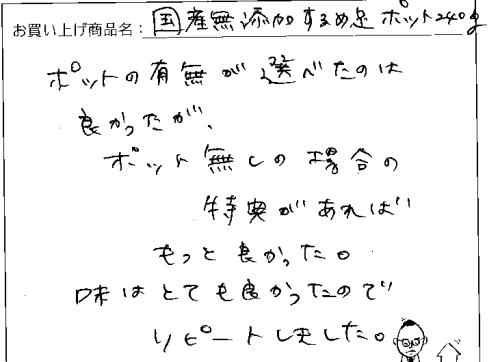 お買い上げ商品名: 国産無添加するめ足 ポット240g
ポットの有無が選べたのは
良かったが、
ポット無しの場合の
特典があれば
もっと良かった。
味はとても良かったので
リピートしました。